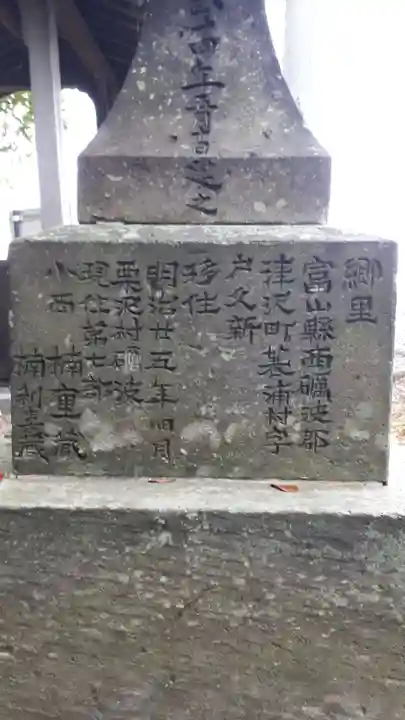 四年八月吉日建之
郷里
富山縣西礪波郡
津沢町蓑浦村字
岸久新
移住
明治廿五年四月
栗沢村礪波
現住第七部
小西 楠重蔵
楠利喜蔵